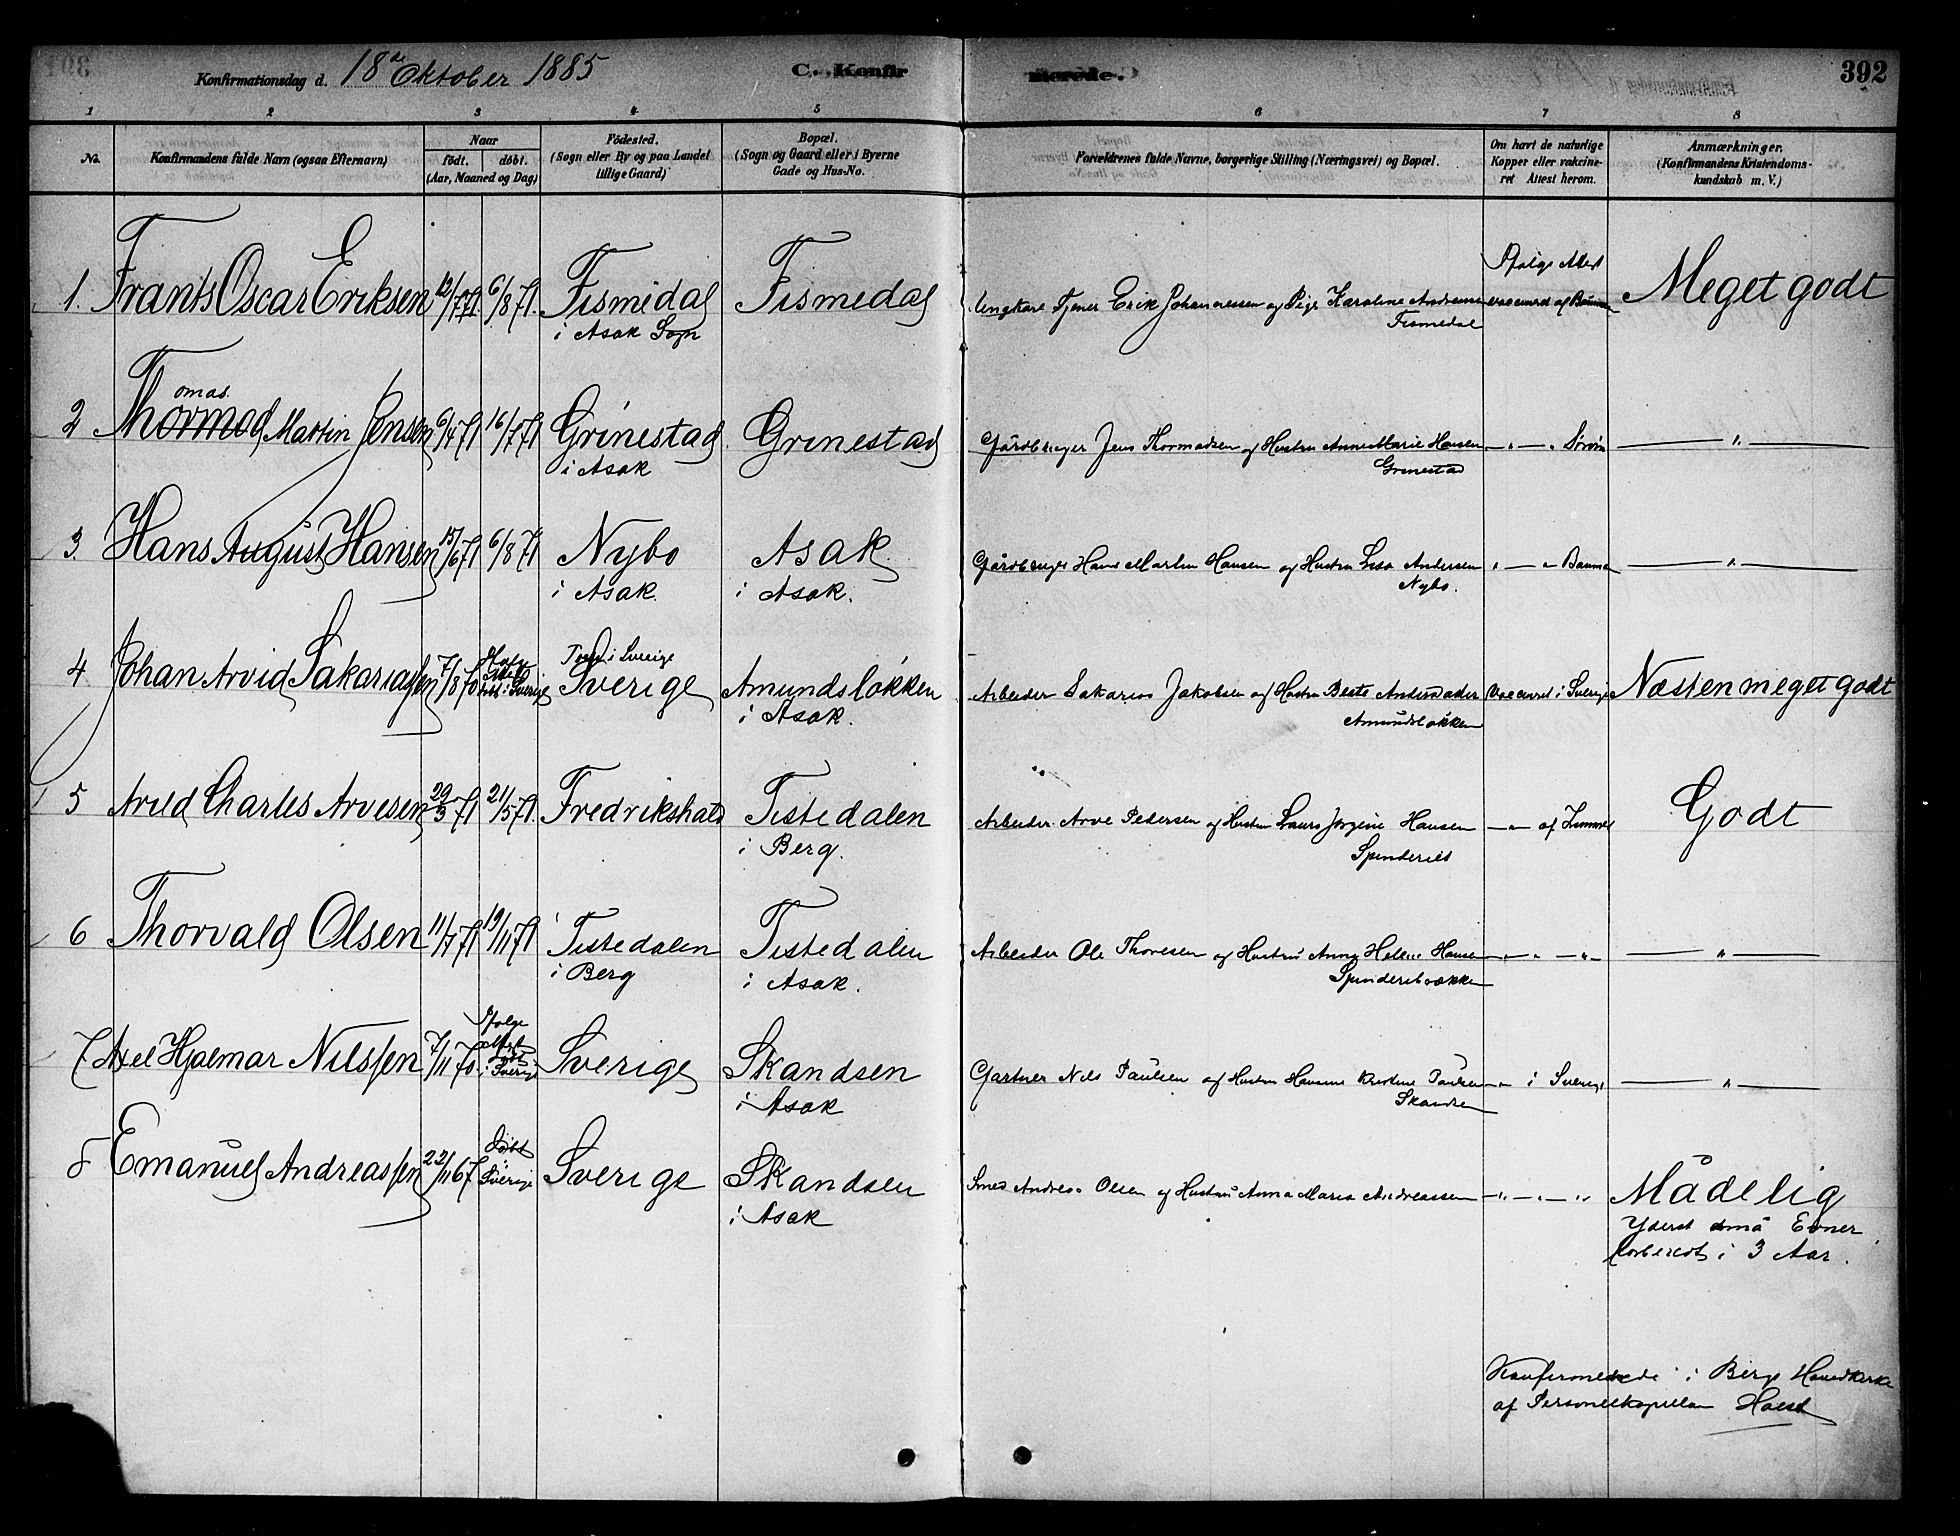 Konfirmationsdag d. 18de Oktober 1885 C. Konfirmerede. 392
1 2 3 4 5 6 7 8
No. Konfirmandens fulde Navn (ogsaa Efternavn) Naar født. døbt. (Aar, Maaned og Dag) Fødested. (Sogn eller By og paa Landet tillige Gaard) Bopæl. (Sogn og Gaard eller i Byerne Gade og Hus-No. Forældrenes fulde Navne, borgerlige Stilling (Næringsvei) og Bopæl. Om havt de naturlige Kopper eller vakcineret Attest herom. Anmærkninger. (Konfirmandens Kristendomskundskab m. V.)
Ifølge Attest
1. Frants Oscar Eriksen 12/7 71. 6/8 71. Tismedal Tismedal Ungkarl Tjener Erik Johannessen og Pige Karoline Andrea vaccineret af Bauman Meget godt
i Asak Sogn Tismedal
omas.
2 Thormod Martin Jensen 6/4 71 16/7 71 Grinestad Grinestad Gårdbruger Jens Thormodsen og Hustru Anne Marie Hansen " — " Sørøn — " —
i Asak Grinestad
3. Hans August Hansen 15/6 71 6/8 71 Nybo Asak Gårdbruger Hans Martin Hansen og Hustru Lisa Andersen " — " Bauma — " —
i Asak. i Asak. Nybo.
i Sverige
4 Johan Arvid Sakariassen 7/8 70 Ifølge Attest døbt i Sverige Sverige Amundsløkken Arbeider Sakarias Jakobsen og Hustru Beate Andersdatter Vaccineret i Sverige Næsten meget godt
i Asak. Amundsløkken
5 Arvid Charles Arvesen 29/3 71 21/5 71. Fredrikshald Tistedalen Arbeider Arve Pedersen og Hustru Laura Jørgine Hansen — " — af Godt
i Berg. Spinderiet
6 Thorvald Olsen 11/7 71 19/11 71 Tistedalen Tistedalen Arbeider Ole Thoresen og Hustru Anna Helene Hansen — " — " — " — — " —
i Berg i Asak. Spinderibakken
7 Axel Hjalmar Nilssen 7/11 70. Ifølge Attest døbt i Sverige Sverige Skandsen Gartner Nils Paulsen og Hustru Hansine Kristine Paulsen — " i Sverige — " —
i Asak Skandsen
8 Emanuel Andreassen 22/11 67 Døbt i Sverige Sverige Skandsen Smed Andreas Olsen og Hustru Anna Maria Andreassen — " — " — " Mådelig
i Asak Yderst små Evner.
forberedt i 3 Aar.
Konfirmerede i Bergs Hovedkirke
af Personelkapellan Holst